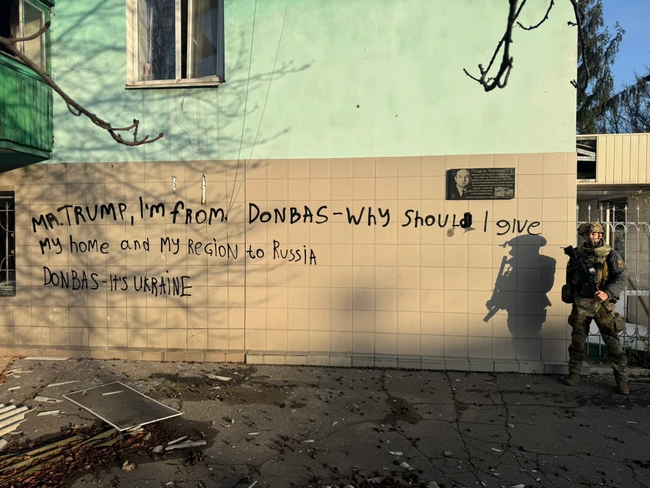 MR. TRUMP, I'm from DONBAS-Why Should I give
my home and my REGION to Russia
DONBAS-It's UKRAINE